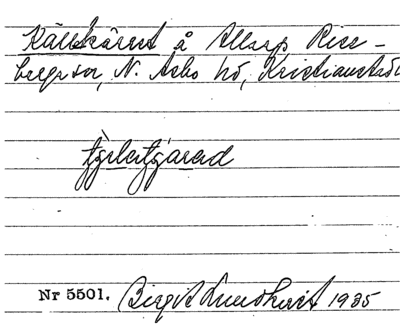 Källkärret å Allarp Rise-
berga sn, N. Åsbo hd, Kristianstads
Nr 5501. Birgit Lundkvist 1935